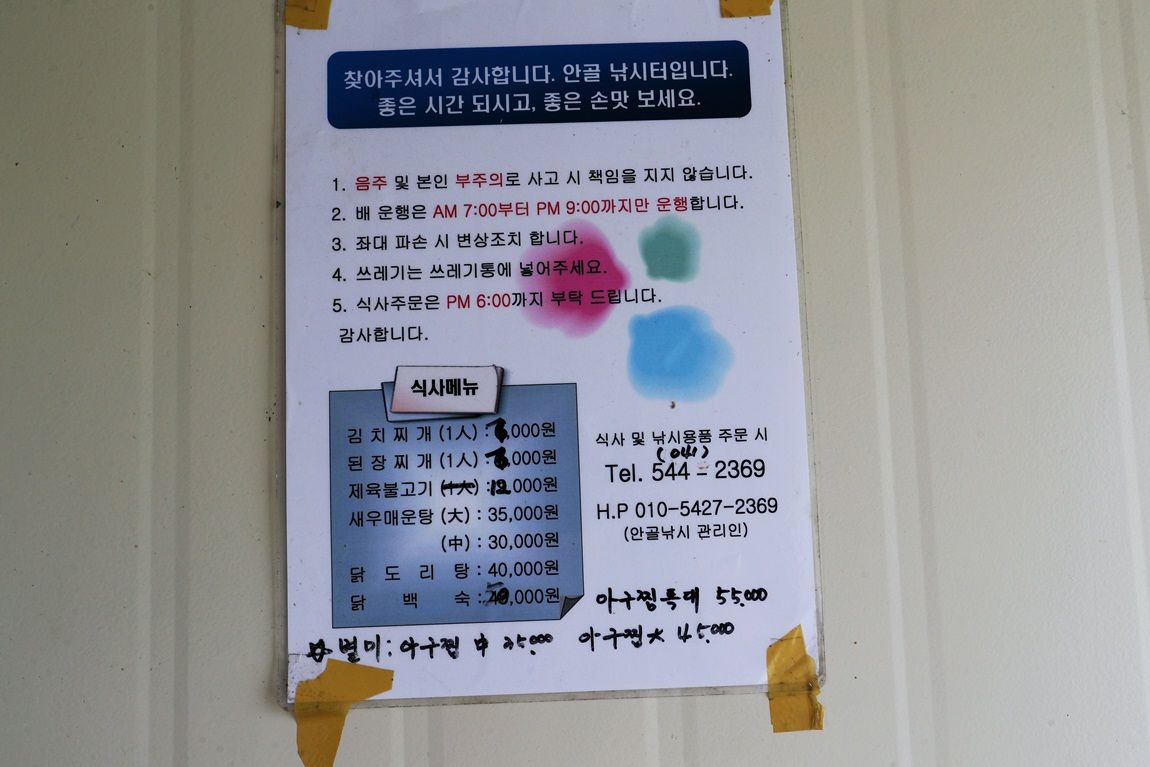 찾아주셔서 감사합니다. 안골 낚시터입니다.
좋은 시간 되시고, 좋은 손맛 보세요.
1. 음주 및 본인 부주의로 사고 시 책임을 지지 않습니다.
2. 배 운행은 AM 7:00부터 PM 9:00까지만 운행합니다.
3. 좌대 파손 시 변상조치 합니다.
4. 쓰레기는 쓰레기통에 넣어주세요.
5. 식사주문은 PM 6:00까지 부탁 드립니다.
감사합니다.
식사메뉴
김치찌개 (1人) : ,000원
된장찌개 (1人) : ,000원
제육불고기 : 12,000원
새우매운탕 (大) : 35,000원
(中) : 30,000원
닭 도 리 탕 : 40,000원
닭 백 숙 : ,000원
식사 및 낚시용품 주문 시
(041)
Tel. 544-2369
H.P 010-5427-2369
(안골낚시 관리인)
아구찜특대 55,000
별미: 아구찜 中 35,000 아구찜大 45,000